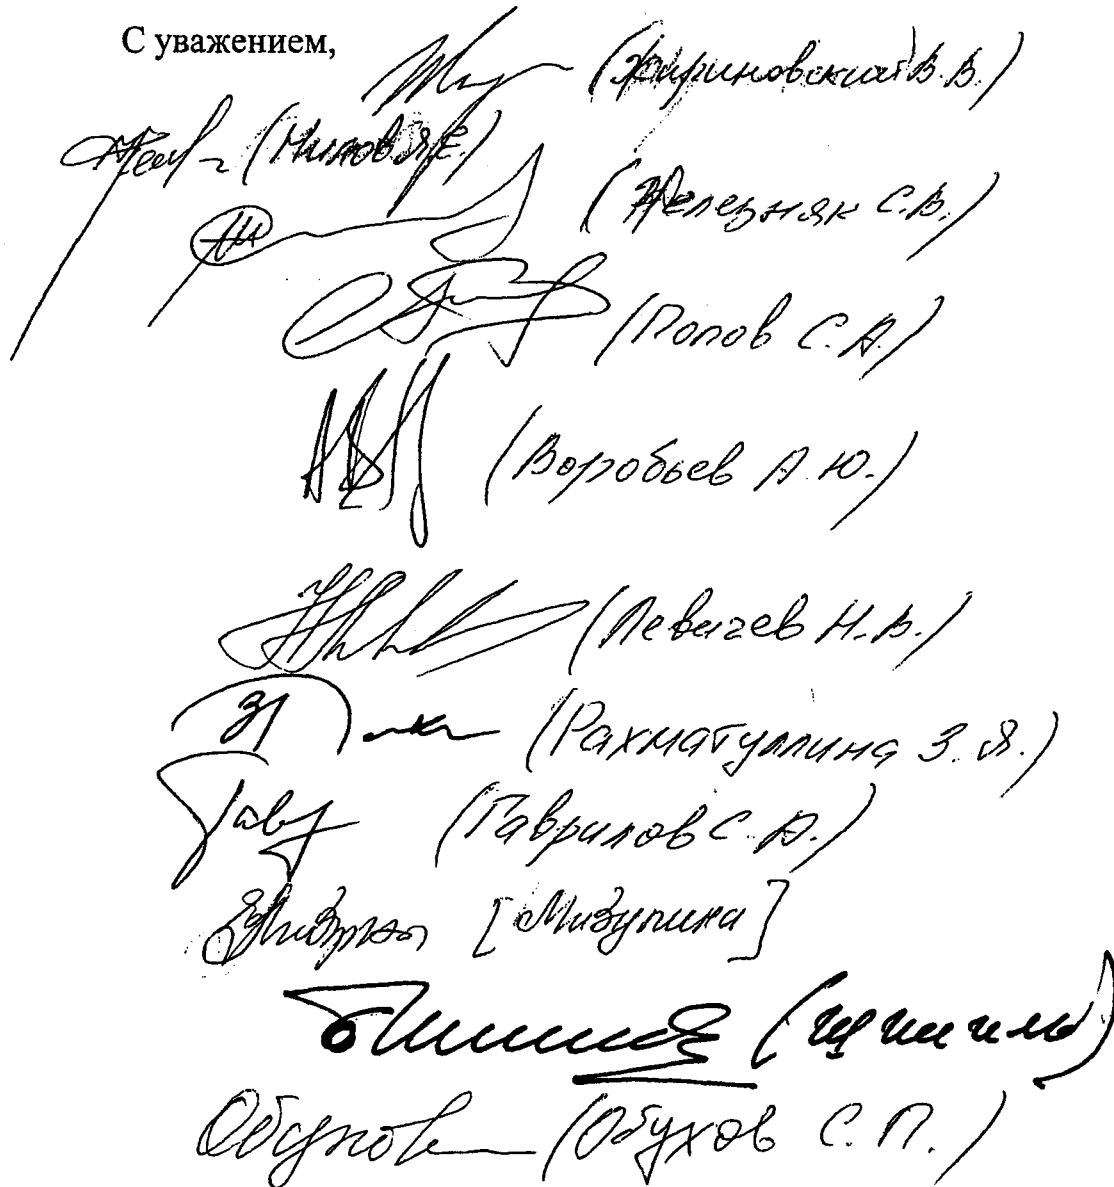 С уважением,
(Жириновский В.В.)
(Нилов Я.Е.)
(Железняк С.В.)
(Попов С.А.)
(Воробьев А.Ю.)
(Левичев Н.В.)
(Рахматуллина З.Я.)
(Гаврилов С.А.)
[Мизулина]
Обухов (Обухов С.П.)